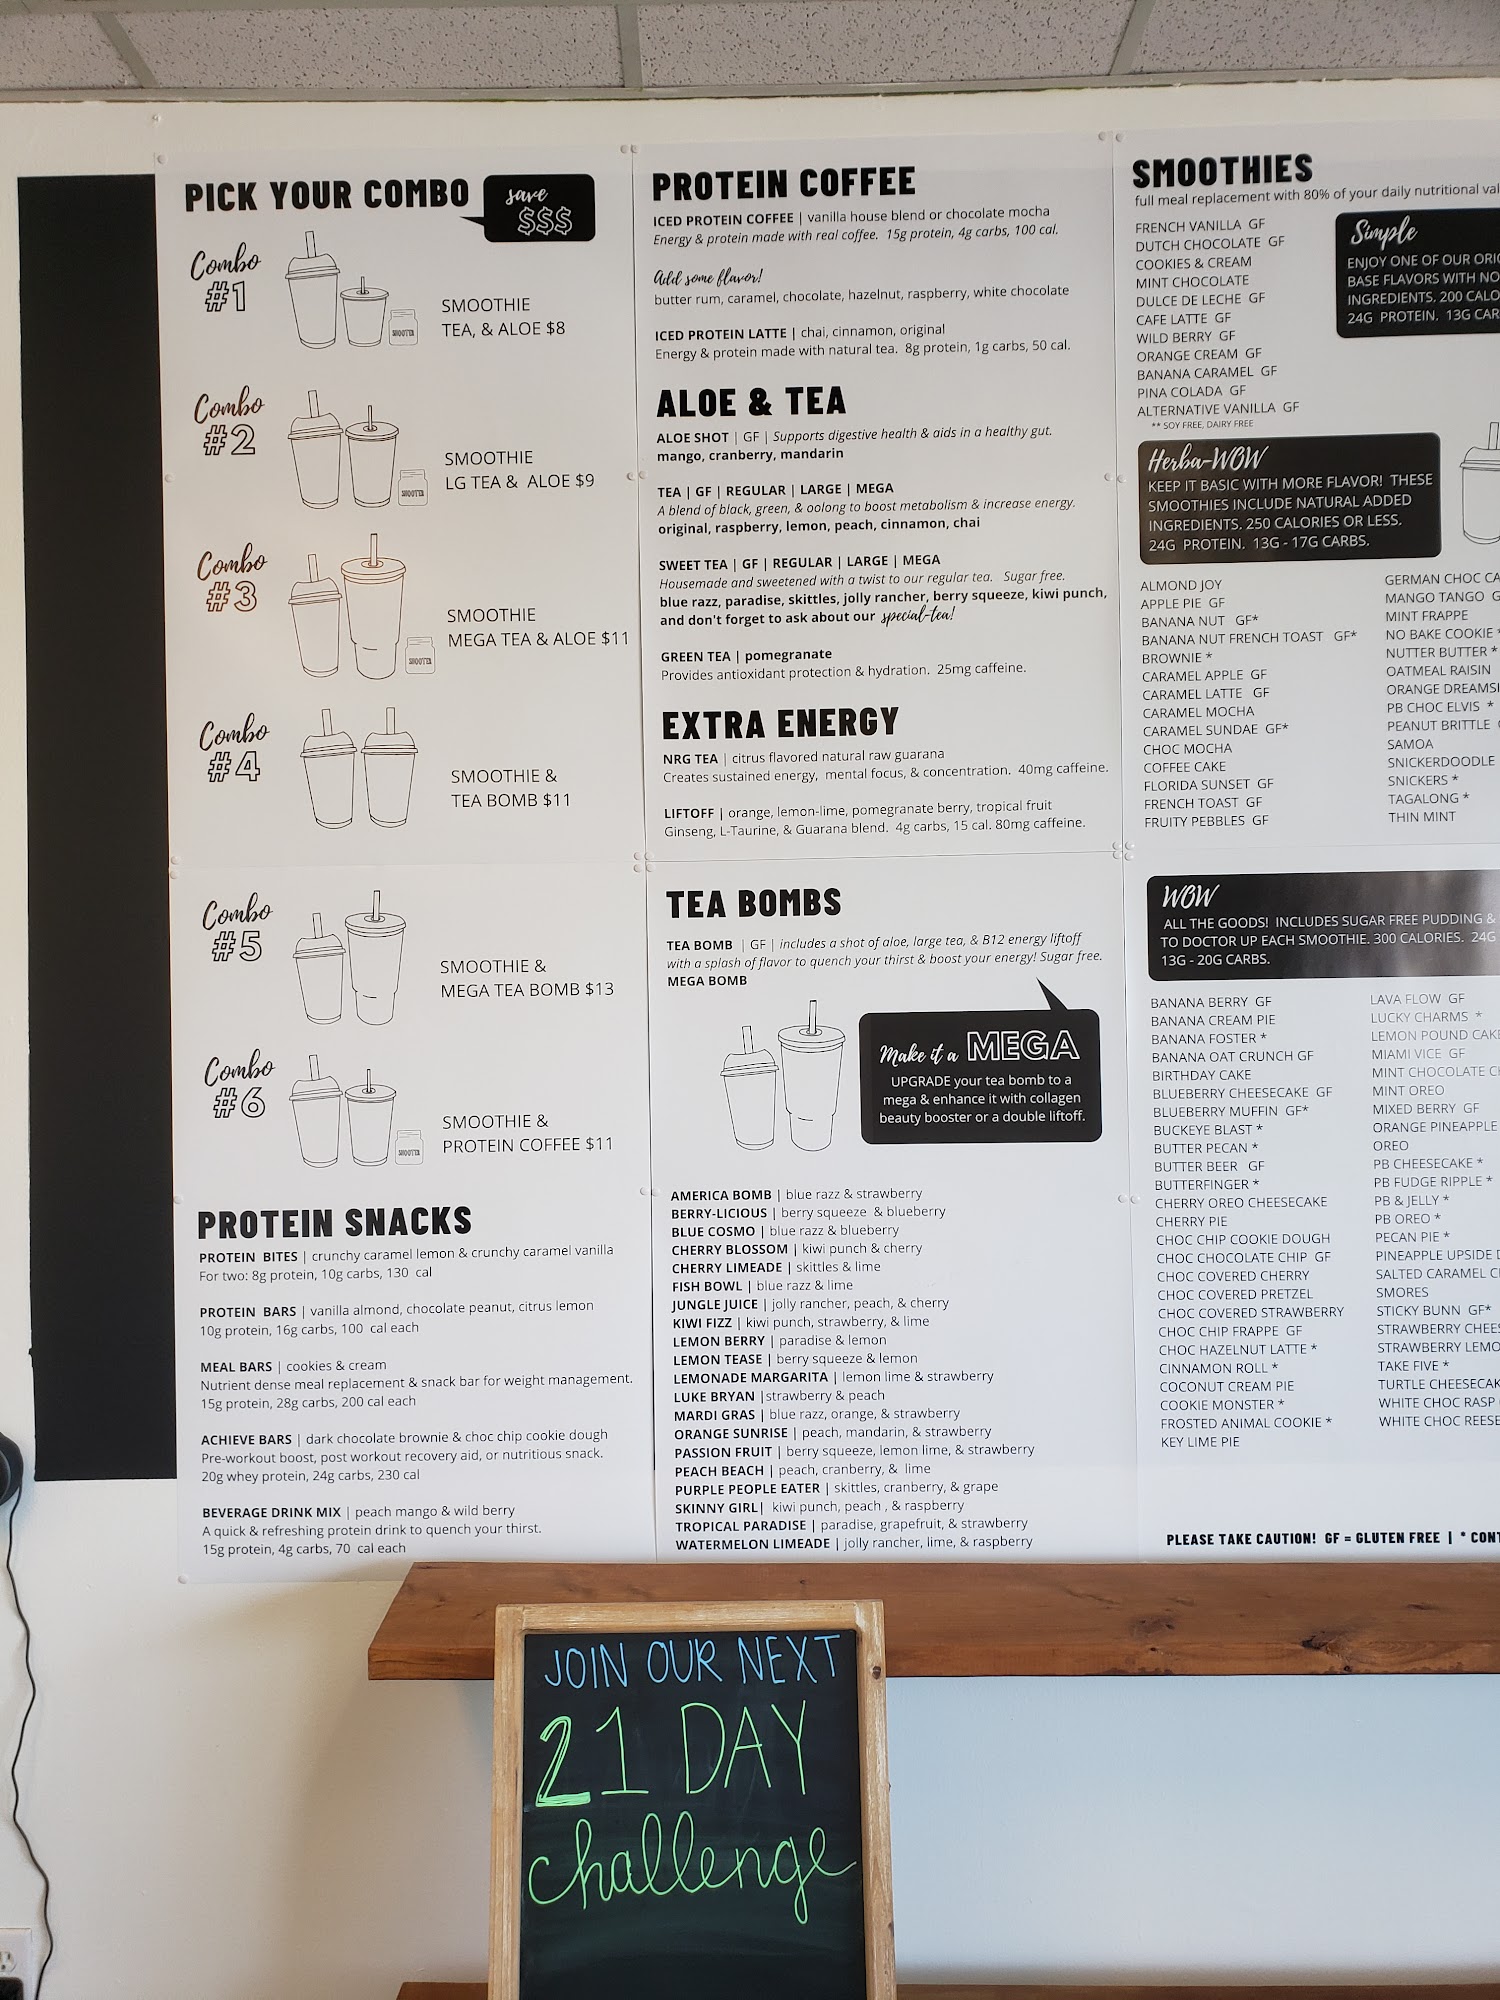 PICK YOUR COMBO
save
$$$
Combo
#1
SMOOTHIE
TEA, & ALOE $8
SHOOTER
Combo
#2
SMOOTHIE
LG TEA & ALOE $9
SHOOTER
Combo
#3
SMOOTHIE
MEGA TEA & ALOE $11
SHOOTER
Combo
#4
SMOOTHIE &
TEA BOMB $11
Combo
#5
SMOOTHIE &
MEGA TEA BOMB $13
Combo
#6
SMOOTHIE &
PROTEIN COFFEE $11
SHOOTER
PROTEIN SNACKS
PROTEIN BITES | crunchy caramel lemon & crunchy caramel vanilla
For two: 8g protein, 10g carbs, 130 cal
PROTEIN BARS | vanilla almond, chocolate peanut, citrus lemon
10g protein, 16g carbs, 100 cal each
MEAL BARS | cookies & cream
Nutrient dense meal replacement & snack bar for weight management.
15g protein, 28g carbs, 200 cal each
ACHIEVE BARS | dark chocolate brownie & choc chip cookie dough
Pre-workout boost, post workout recovery aid, or nutritious snack.
20g whey protein, 24g carbs, 230 cal
BEVERAGE DRINK MIX | peach mango & wild berry
A quick & refreshing protein drink to quench your thirst.
15g protein, 4g carbs, 70 cal each
PROTEIN COFFEE
ICED PROTEIN COFFEE | vanilla house blend or chocolate mocha
Energy & protein made with real coffee. 15g protein, 4g carbs, 100 cal.
Add some flavor!
butter rum, caramel, chocolate, hazelnut, raspberry, white chocolate
ICED PROTEIN LATTE | chai, cinnamon, original
Energy & protein made with natural tea. 8g protein, 1g carbs, 50 cal.
ALOE & TEA
ALOE SHOT | GF | Supports digestive health & aids in a healthy gut.
mango, cranberry, mandarin
TEA | GF | REGULAR | LARGE | MEGA
A blend of black, green, & oolong to boost metabolism & increase energy.
original, raspberry, lemon, peach, cinnamon, chai
SWEET TEA | GF | REGULAR | LARGE | MEGA
Housemade and sweetened with a twist to our regular tea. Sugar free.
blue razz, paradise, skittles, jolly rancher, berry squeeze, kiwi punch,
and don't forget to ask about our special-tea!
GREEN TEA | pomegranate
Provides antioxidant protection & hydration. 25mg caffeine.
EXTRA ENERGY
NRG TEA | citrus flavored natural raw guarana
Creates sustained energy, mental focus, & concentration. 40mg caffeine.
LIFTOFF | orange, lemon-lime, pomegranate berry, tropical fruit
Ginseng, L-Taurine, & Guarana blend. 4g carbs, 15 cal. 80mg caffeine.
TEA BOMBS
TEA BOMB | GF | includes a shot of aloe, large tea, & B12 energy liftoff
with a splash of flavor to quench your thirst & boost your energy! Sugar free.
MEGA BOMB
Make it a MEGA
UPGRADE your tea bomb to a
mega & enhance it with collagen
beauty booster or a double liftoff.
AMERICA BOMB | blue razz & strawberry
BERRY-LICIOUS | berry squeeze & blueberry
BLUE COSMO | blue razz & blueberry
CHERRY BLOSSOM | kiwi punch & cherry
CHERRY LIMEADE | skittles & lime
FISH BOWL | blue razz & lime
JUNGLE JUICE | jolly rancher, peach, & cherry
KIWI FIZZ | kiwi punch, strawberry, & lime
LEMON BERRY | paradise & lemon
LEMON TEASE | berry squeeze & lemon
LEMONADE MARGARITA | lemon lime & strawberry
LUKE BRYAN |strawberry & peach
MARDI GRAS | blue razz, orange, & strawberry
ORANGE SUNRISE | peach, mandarin, & strawberry
PASSION FRUIT | berry squeeze, lemon lime, & strawberry
PEACH BEACH | peach, cranberry, & lime
PURPLE PEOPLE EATER | skittles, cranberry, & grape
SKINNY GIRL| kiwi punch, peach , & raspberry
TROPICAL PARADISE | paradise, grapefruit, & strawberry
WATERMELON LIMEADE | jolly rancher, lime, & raspberry
SMOOTHIES
full meal replacement with 80% of your daily nutritional
FRENCH VANILLA GF
DUTCH CHOCOLATE GF
COOKIES & CREAM
MINT CHOCOLATE
DULCE DE LECHE GF
CAFE LATTE GF
WILD BERRY GF
ORANGE CREAM GF
BANANA CARAMEL GF
PINA COLADA GF
ALTERNATIVE VANILLA GF
** SOY FREE, DAIRY FREE
Simple
ENJOY ONE OF OUR
BASE FLAVORS WITH NO
INGREDIENTS. 200
24G PROTEIN. 13G
Herba-WOW
KEEP IT BASIC WITH MORE FLAVOR! THESE
SMOOTHIES INCLUDE NATURAL ADDED
INGREDIENTS. 250 CALORIES OR LESS.
24G PROTEIN. 13G - 17G CARBS.
ALMOND JOY
APPLE PIE GF
BANANA NUT GF*
BANANA NUT FRENCH TOAST GF*
BROWNIE *
CARAMEL APPLE GF
CARAMEL LATTE GF
CARAMEL MOCHA
CARAMEL SUNDAE GF*
CHOC MOCHA
COFFEE CAKE
FLORIDA SUNSET GF
FRENCH TOAST GF
FRUITY PEBBLES GF
GERMAN CHOC CA
MANGO TANGO G
MINT FRAPPE
NO BAKE COOKIE *
NUTTER BUTTER *
OATMEAL RAISIN
ORANGE DREAMSI
PB CHOC ELVIS *
PEANUT BRITTLE
SAMOA
SNICKERDOODLE
SNICKERS *
TAGALONG *
THIN MINT
WOW
ALL THE GOODS! INCLUDES SUGAR FREE PUDDING &
TO DOCTOR UP EACH SMOOTHIE. 300 CALORIES. 24G
13G - 20G CARBS.
BANANA BERRY GF
BANANA CREAM PIE
BANANA FOSTER *
BANANA OAT CRUNCH GF
BIRTHDAY CAKE
BLUEBERRY CHEESECAKE GF
BLUEBERRY MUFFIN GF*
BUCKEYE BLAST *
BUTTER PECAN *
BUTTER BEER GF
BUTTERFINGER *
CHERRY OREO CHEESECAKE
CHERRY PIE
CHOC CHIP COOKIE DOUGH
CHOC CHOCOLATE CHIP GF
CHOC COVERED CHERRY
CHOC COVERED PRETZEL
CHOC COVERED STRAWBERRY
CHOC CHIP FRAPPE GF
CHOC HAZELNUT LATTE *
CINNAMON ROLL *
COCONUT CREAM PIE
COOKIE MONSTER *
FROSTED ANIMAL COOKIE *
KEY LIME PIE
LAVA FLOW GF
LUCKY CHARMS *
LEMON POUND CAKE
MIAMI VICE GF
MINT CHOCOLATE C
MINT OREO
MIXED BERRY GF
ORANGE PINEAPPLE
OREO
PB CHEESECAKE *
PB FUDGE RIPPLE *
PB & JELLY *
PB OREO *
PECAN PIE *
PINEAPPLE UPSIDE D
SALTED CARAMEL C
SMORES
STICKY BUNN GF*
STRAWBERRY CHEES
STRAWBERRY LEMO
TAKE FIVE *
TURTLE CHEESECAK
WHITE CHOC RASP
WHITE CHOC REESE
PLEASE TAKE CAUTION! GF = GLUTEN FREE | * CONT
JOIN OUR NEXT
21 DAY
challenge